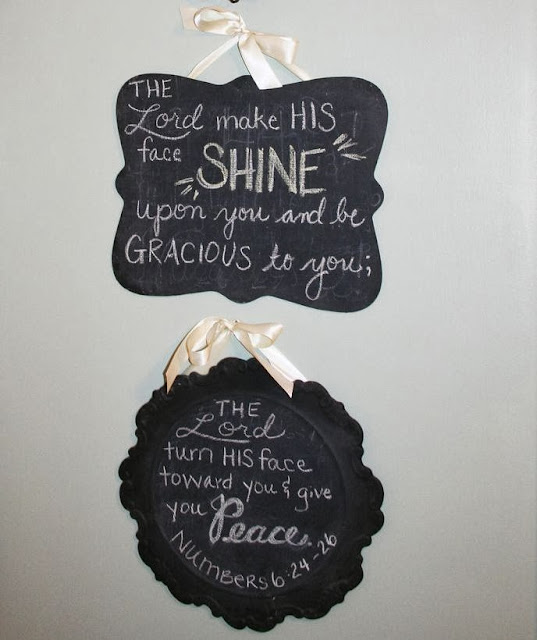 THE
Lord make HIS
face SHINE
upon you and be
GRACIOUS to you;
THE
Lord
turn HIS face
toward you & give
you Peace.
NUMBERS 6:24-26